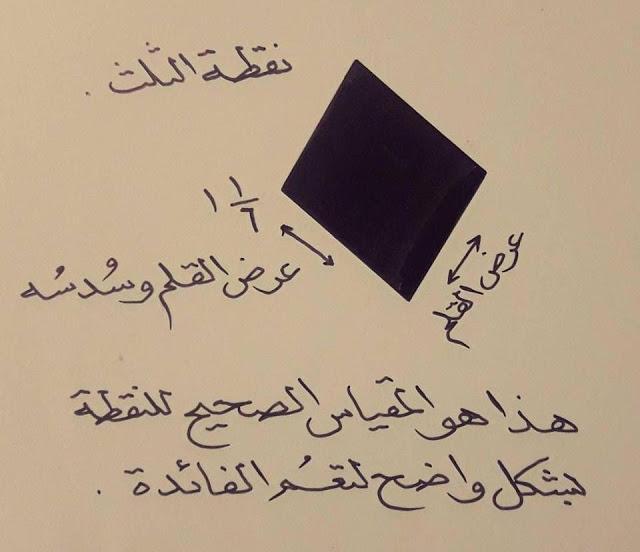 نقطة الثلث .
١ ١/٦
عرض القلم وسُدسُه
عرض القلم
هذا هو المقياس الصحيح للنقطة
بشكل واضح لتعُم الفائدة .